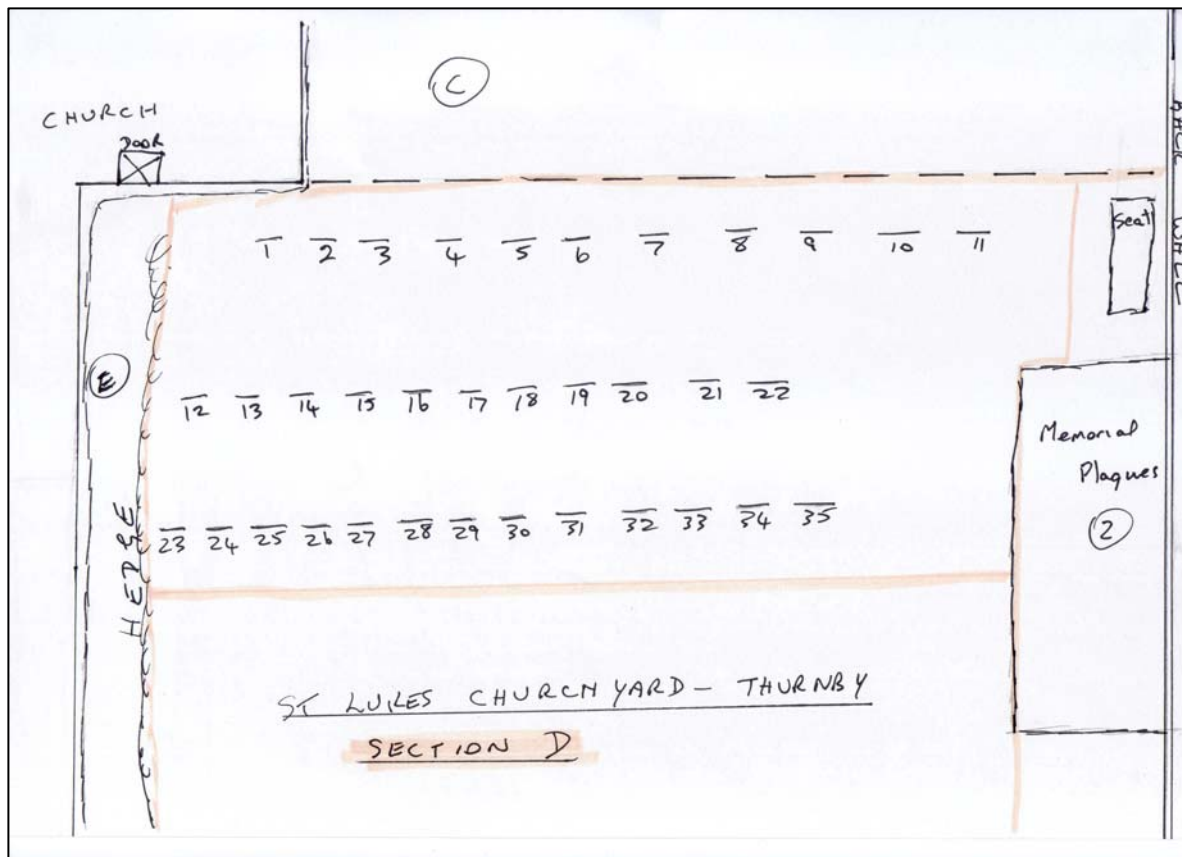 C
CHURCH
DOOR
BACK WALL
Seat
1 2 3 4 5 6 7 8 9 10 11
E
12 13 14 15 16 17 18 19 20 21 22
Memorial
Plaques
2
HEDGE
23 24 25 26 27 28 29 30 31 32 33 34 35
ST LUKES CHURCHYARD - THURNBY
SECTION D